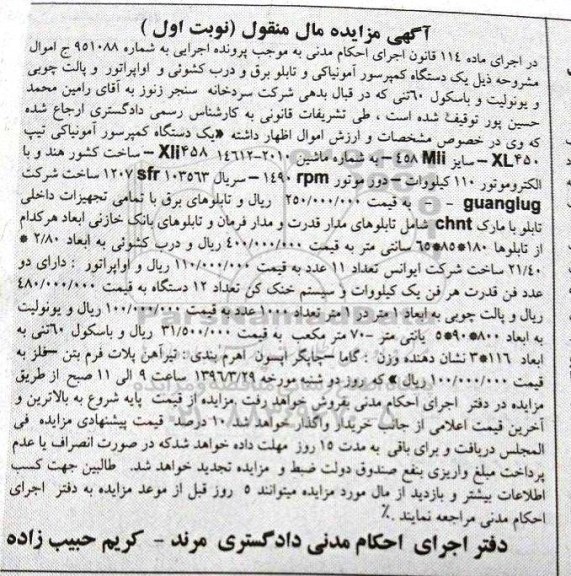 آگهی مزایده مال منقول (نوبت اول )
در اجرای ماده ۱۱۴ قانون اجرای احکام مدنی به موجب پرونده اجرایی به شماره ۹۵۱۰۸۸ ج اموال
مشروحه ذیل یک دستگاه کمپرسور آمونیاکی و تابلو برق و درب کشوئی و اواپراتور و پالت چوبی
و یونولیت و باسکول ۶۰تنی که در قبال بدهی شرکت سردخانه سنجر زنوز به آقای رامین محمد
حسین پور توقیف شده است ، طی تشریفات قانونی به کارشناس رسمی دادگستری ارجاع شده
که وی در خصوص مشخصات و ارزش اموال اظهار داشته «یک دستگاه کمپرسور آمونیاکی تیپ
XL۴۵۰ – سایز ۴۵۸ Mii – به شماره ماشین ۲۰۱۰-۱۴۶۱۲ Xli۴۵۸ – ساخت کشور هند و با
الکتروموتور ۱۱۰ کیلووات – دور موتور ۱۴۹۰ rpm – سریال ۱۰۳۵۶۳ sfr ۱۲۰۷ ساخت شرکت
guanglug - - به قیمت ۲۵۰/۰۰۰/۰۰۰ ریال و تابلوهای برق با تمامی تجهیزات داخلی
تابلو با مارک chnt شامل تابلوهای مدار قدرت و مدار فرمان و تابلوهای بانک خازنی ابعاد هرکدام
از تابلوها ۱۸۰*۸۵*۶۵ سانتی متر به قیمت ۴۰۰/۰۰۰/۰۰۰ ریال و درب کشوئی به ابعاد ۲/۸۰ *
۲۱/۴۰ ساخت شرکت ایوانس تعداد ۱۱ عدد به قیمت ۱۱۰/۰۰۰/۰۰۰ ریال و اواپراتور : دارای دو
عدد فن قدرت هر فن یک کیلووات و سیستم خنک کن تعداد ۱۲ دستگاه به قیمت ۴۸۰/۰۰۰/۰۰۰
ریال و پالت چوبی به ابعاد ۱ متر در ۱ متر تعداد ۱۰۰۰ عدد به قیمت ۱۰۰/۰۰۰/۰۰۰ ریال و یونولیت
به ابعاد ۸۰۰*۹۰*۵ یانتی متر -۷۰ متر مکعب به قیمت ۳۱/۵۰۰/۰۰۰ ریال و باسکول ۶۰تنی به
ابعاد ۱۱۶*۳ نشان دهنده وزن : گاما – چاپگر اپسون اهرم بندی : تیرآهن پلات فرم بتن – فلز به
قیمت ۱۰۰/۰۰۰/۰۰۰ ریال» که روز دو شنبه مورخه ۱۳۹۶/۳/۲۹ ساعت ۹ الی ۱۱ صبح از طریق
مزایده در دفتر اجرای احکام مدنی بفروش خواهد رفت .مزایده از قیمت پایه شروع به بالاترین و
آخرین قیمت اعلامی از جانب خریدار واگذار خواهد شد. ۱۰ درصد قیمت پیشنهادی مزایده فی
المجلس دریافت و برای باقی به مدت ۱۵ روز مهلت داده خواهد شدکه در صورت انصراف یا عدم
پرداخت مبلغ واریزی بنفع صندوق دولت ضبط و مزایده تجدید خواهد شد. طالبین جهت کسب
اطلاعات بیشتر و بازدید از مال مورد مزایده میتوانند ۵ روز قبل از موعد مزایده به دفتر اجرای
احکام مدنی مراجعه نمایند .٪
دفتر اجرای احکام مدنی دادگستری مرند – کریم حبیب زاده